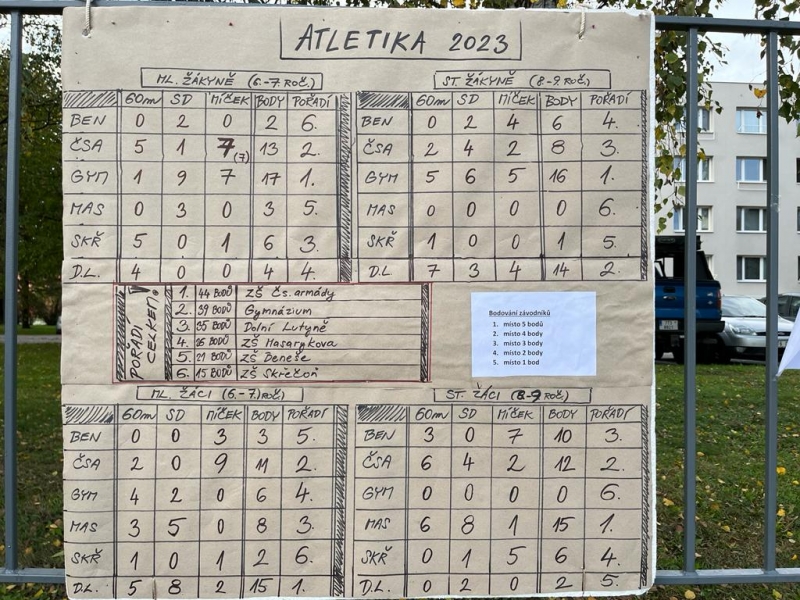 ATLETIKA 2023
ML. ŽÁKYNĚ (6.-7. ROČ.)
60m SD MÍČEK BODY POŘADÍ
BEN 0 2 0 2 6.
ČSA 5 1 7 (7) 13 2.
GYM 1 9 7 17 1.
MAS 0 3 0 3 5.
SKŘ 5 0 1 6 3.
D.L. 4 0 0 4 4.
ST. ŽÁKYNĚ (8-9. ROČ.)
60m SD MÍČEK BODY POŘADÍ
BEN 0 2 4 6 4.
ČSA 2 4 2 8 3.
GYM 5 6 5 16 1.
MAS 0 0 0 0 6.
SKŘ 1 0 0 1 5.
D.L 7 3 4 14 2.
POŘADÍ CELKEM:
1. 44 BODŮ ZŠ Čs. armády
2. 39 BODŮ Gymnázium
3. 35 BODŮ Dolní Lutyně
4. 26 BODŮ ZŠ Masarykova
5. 21 BODŮ ZŠ Beneše
6. 15 BODŮ ZŠ Skřečoň
Bodování závodníků
1. místo 5 bodů
2. místo 4 body
3. místo 3 body
4. místo 2 body
5. místo 1 bod
ML. ŽÁCI (6.-7) ROČ.)
60m SD MÍČEK BODY POŘADÍ
BEN 0 0 3 3 5.
ČSA 2 0 9 11 2.
GYM 4 2 0 6 4.
MAS 3 5 0 8 3.
SKŘ 1 0 1 2 6.
D.L. 5 8 2 15 1.
ST. ŽÁCI (8-9 ROČ.)
60m SD MÍČEK BODY POŘADÍ
BEN 3 0 7 10 3.
ČSA 6 4 2 12 2.
GYM 0 0 0 0 6.
MAS 6 8 1 15 1.
SKŘ 0 1 5 6 4.
D.L. 0 2 0 2 5.